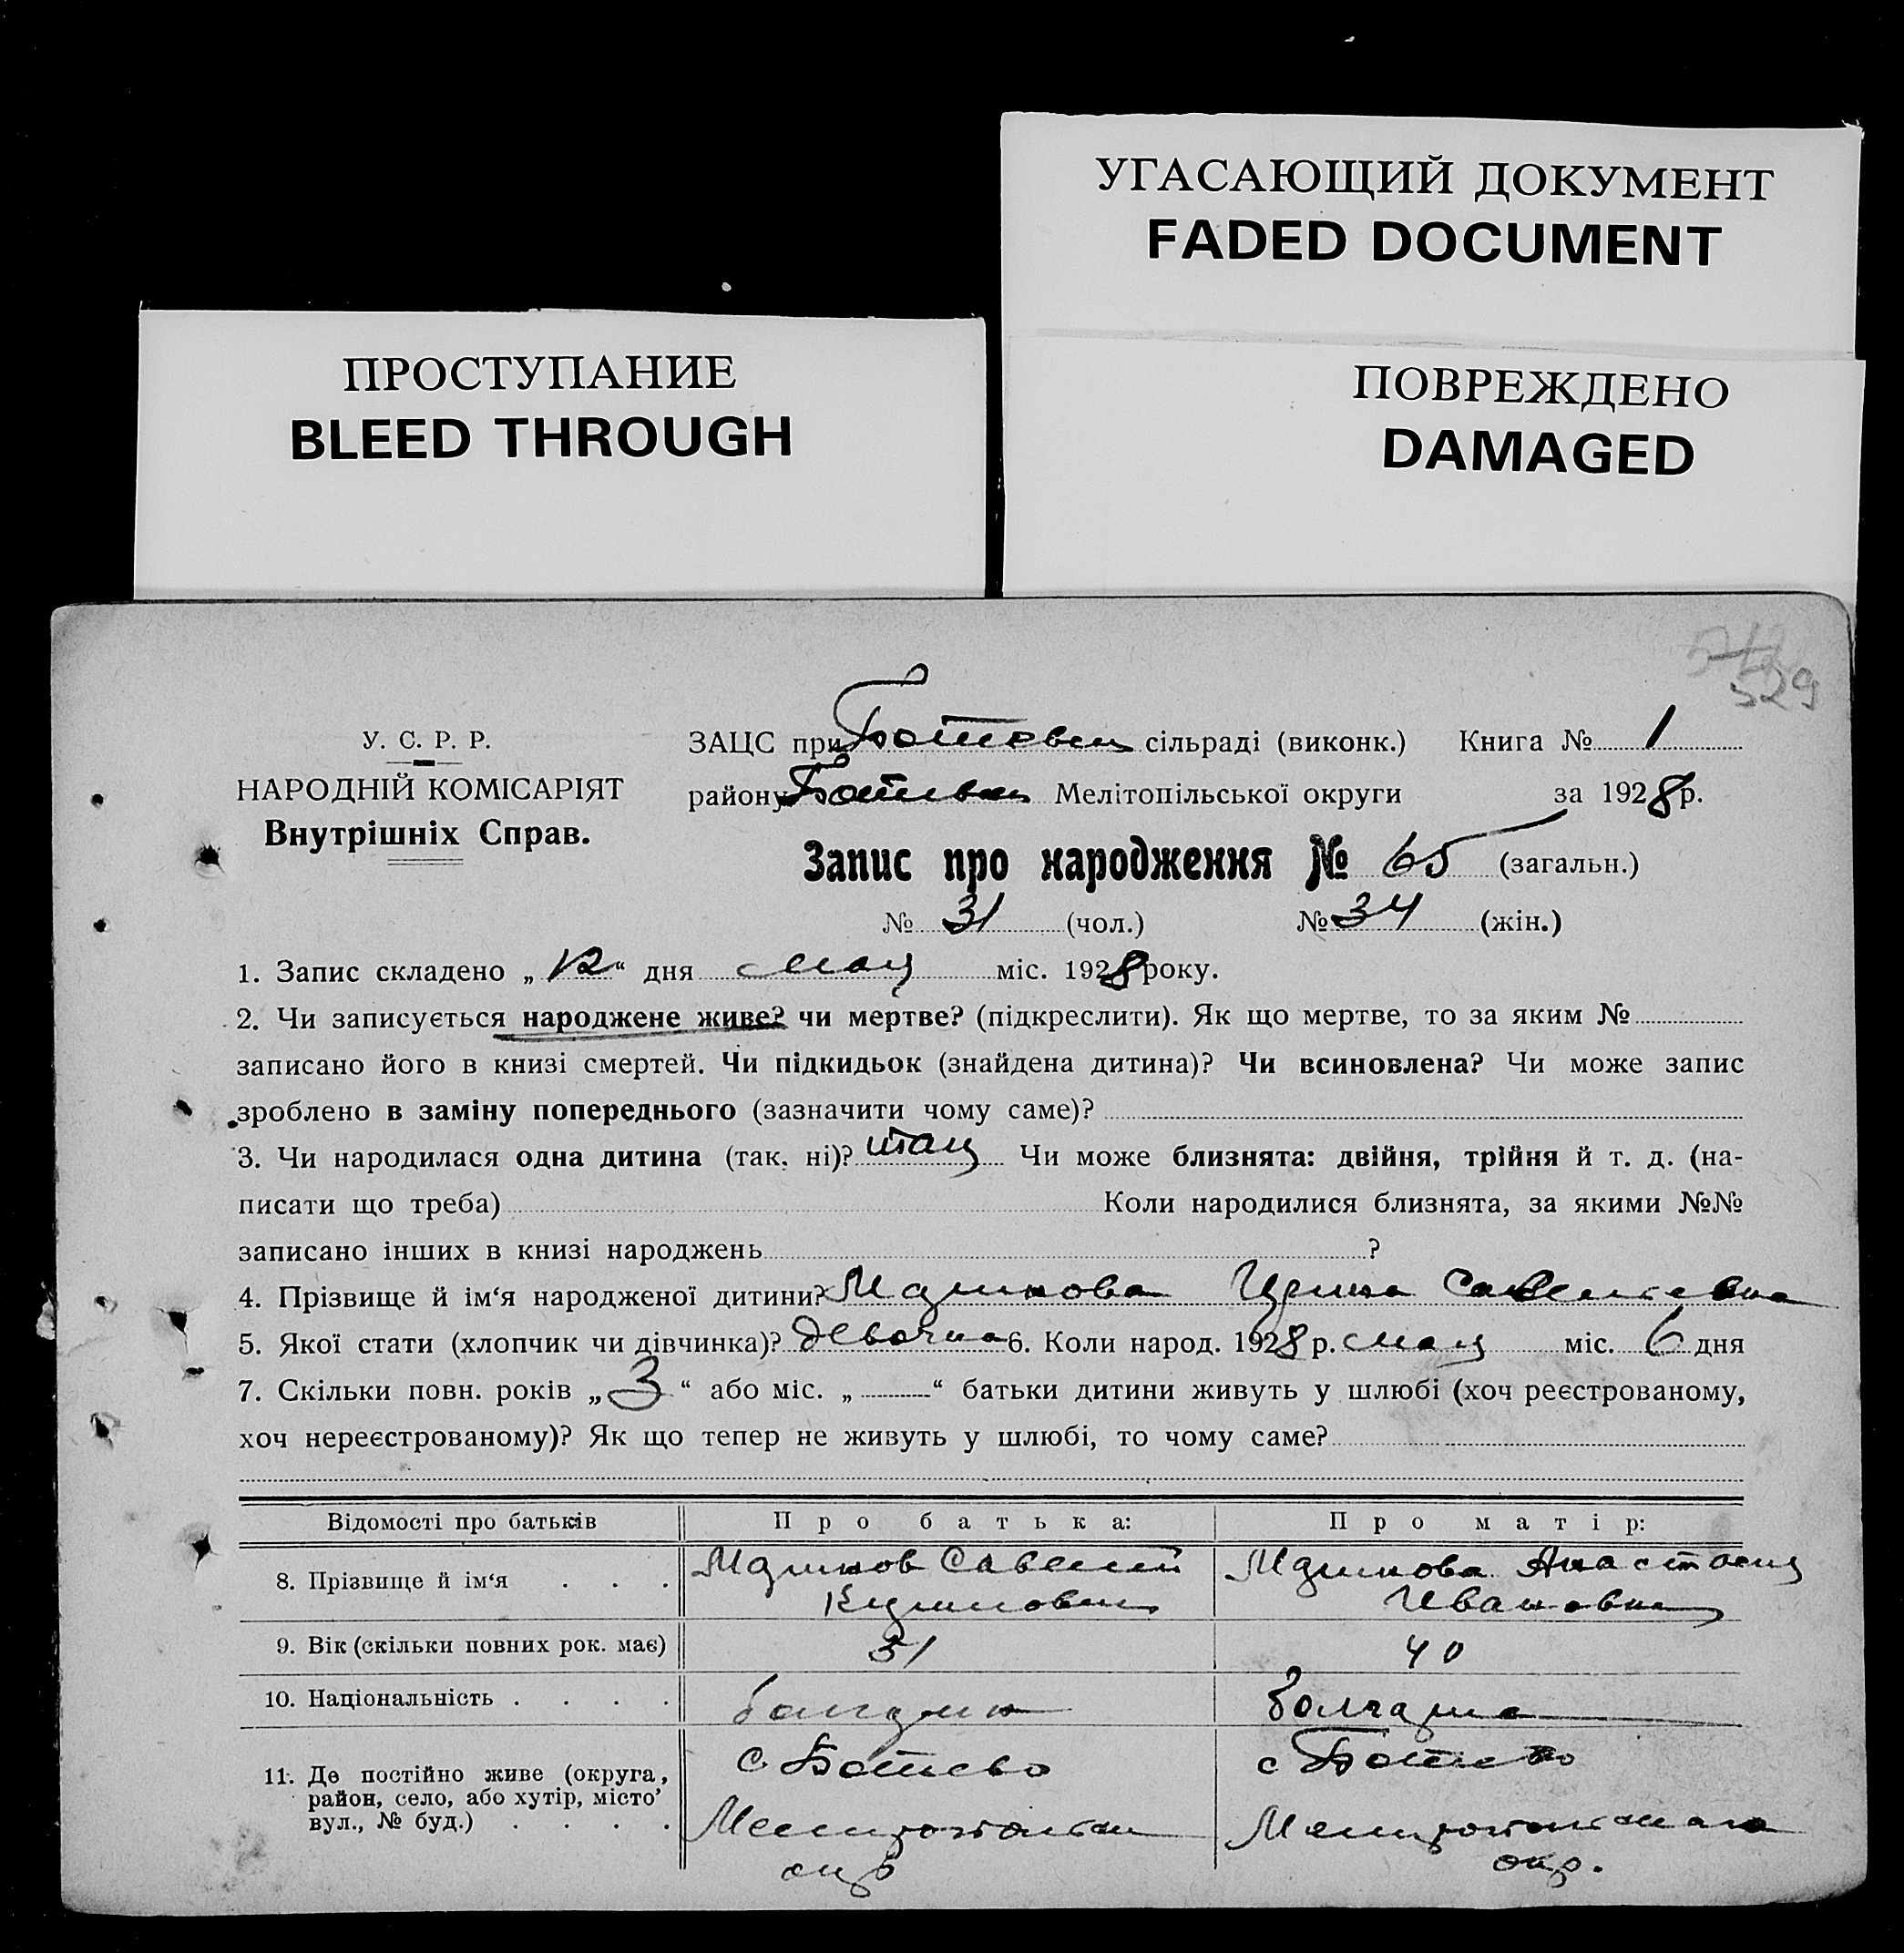 УГАСАЮЩИЙ ДОКУМЕНТ
FADED DOCUMENT
ПРОСТУПАНИЕ
BLEED THROUGH
ПОВРЕЖДЕНО
DAMAGED
529
У. С. Р. Р.
НАРОДНІЙ КОМІСАРІЯТ
Внутрішніх Справ.
ЗАЦС при сільраді (виконк.) Книга № 1
району Мелітопільської округи за 1928 р.
Запис про народження № 65 (загальн.)
№ 31 (чол.) № 34 (жін.)
1. Запис складено „12“ дня мая міс. 1928 року.
2. Чи записується народжене живе? чи мертве? (підкреслити). Як що мертве, то за яким №
записано його в книзі смертей. Чи підкидьок (знайдена дитина)? Чи всиновлена? Чи може запис
зроблено в заміну попереднього (зазначити чому саме)?
3. Чи народилася одна дитина (так, ні)? Чи може близнята: двійня, трійня й т. д. (на-
писати що треба) Коли народилися близнята, за якими №№
записано інших в книзі народжень ?
4. Прізвище й ім‘я народженої дитини?
5. Якої стати (хлопчик чи дівчинка)? девочка 6. Коли народ. 1928 р. мая міс. 6 дня
7. Скільки повн. років „3“ або міс. „ “ батьки дитини живуть у шлюбі (хоч реєстрованому,
хоч нереєстрованому)? Як що тепер не живуть у шлюбі, то чому саме?
Відомості про батьків Про батька: Про матір:
8. Прізвище й ім‘я . . . Савелий Анастасия
Ивановна
9. Вік (скільки повних рок. має) 31 40
10. Національність . . . . болгарин болгарка
11. Де постійно живе (округа, с. Ботиево с Ботиево
район, село, або хутір, місто’
вул., № буд.) . . . . Мелитопольск Мелитопольского
окр окр.